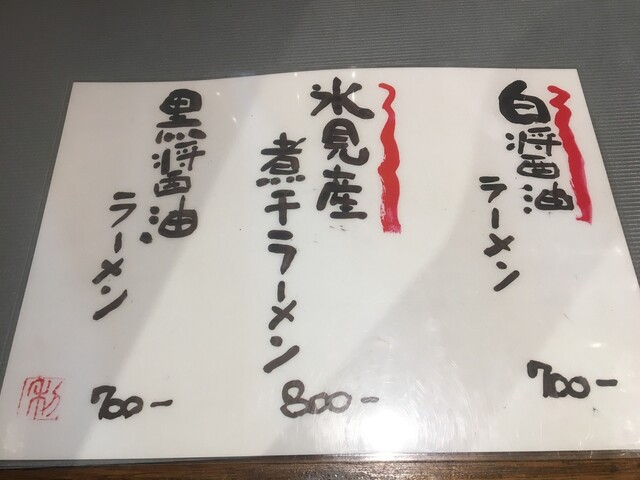 白醤油
ラーメン
700-
氷見産
煮干ラーメン
800-
黒醤油
ラーメン
700-
彩